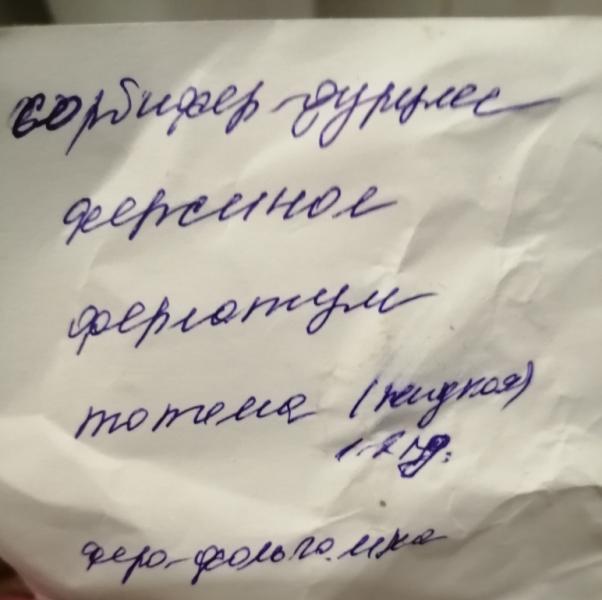 сорбифер-дурулес
ферсинол
ферлатум
тотема (жидкая)
феро-фольгамма